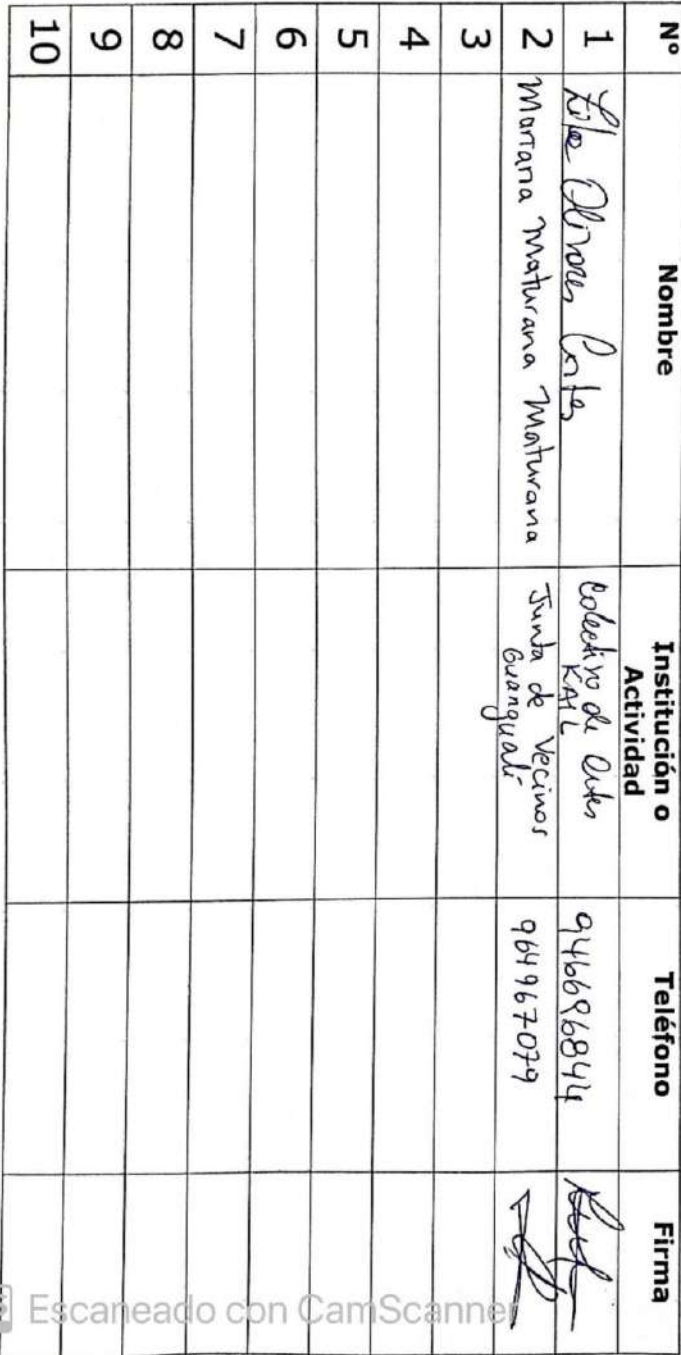 Nº Nombre Institución o Actividad Teléfono Firma
1 Olivares Cortes Colectivo de Artes KAIL
2 Mariana Maturana Maturana Junta de Vecinos Guangualí 964967079
3
4
5
6
7
8
9
10
Escaneado con CamScanner